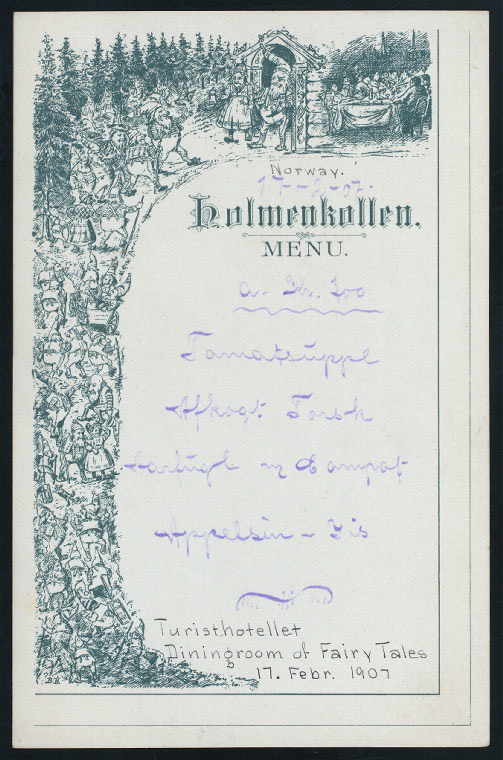 Norway.
17-2-07.
Holmenkollen.
MENU.
a. Kr.
Tomatsuppe
Afkogt Torsk
Aarfugl m Compot
Appelsin - Is
Turisthotellet
Diningroom of Fairy Tales
17. Febr. 1907